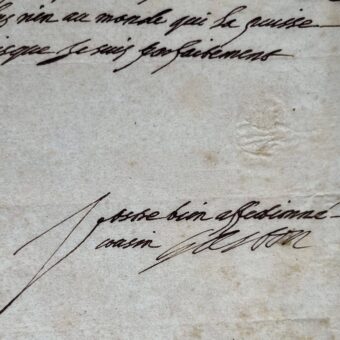 n'en au monde qui la puisse
isque Je suis parfaitement
Vostre bien affectionné
cousin Gaston